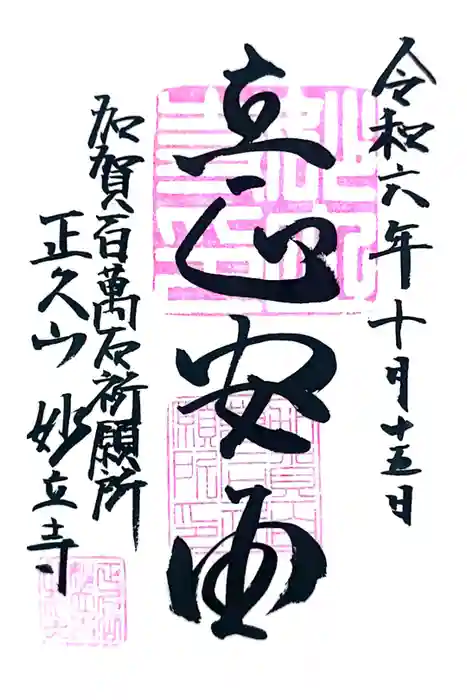 令和六年十月十五日
立正安国
加賀百萬石祈願所
正久山 妙立寺